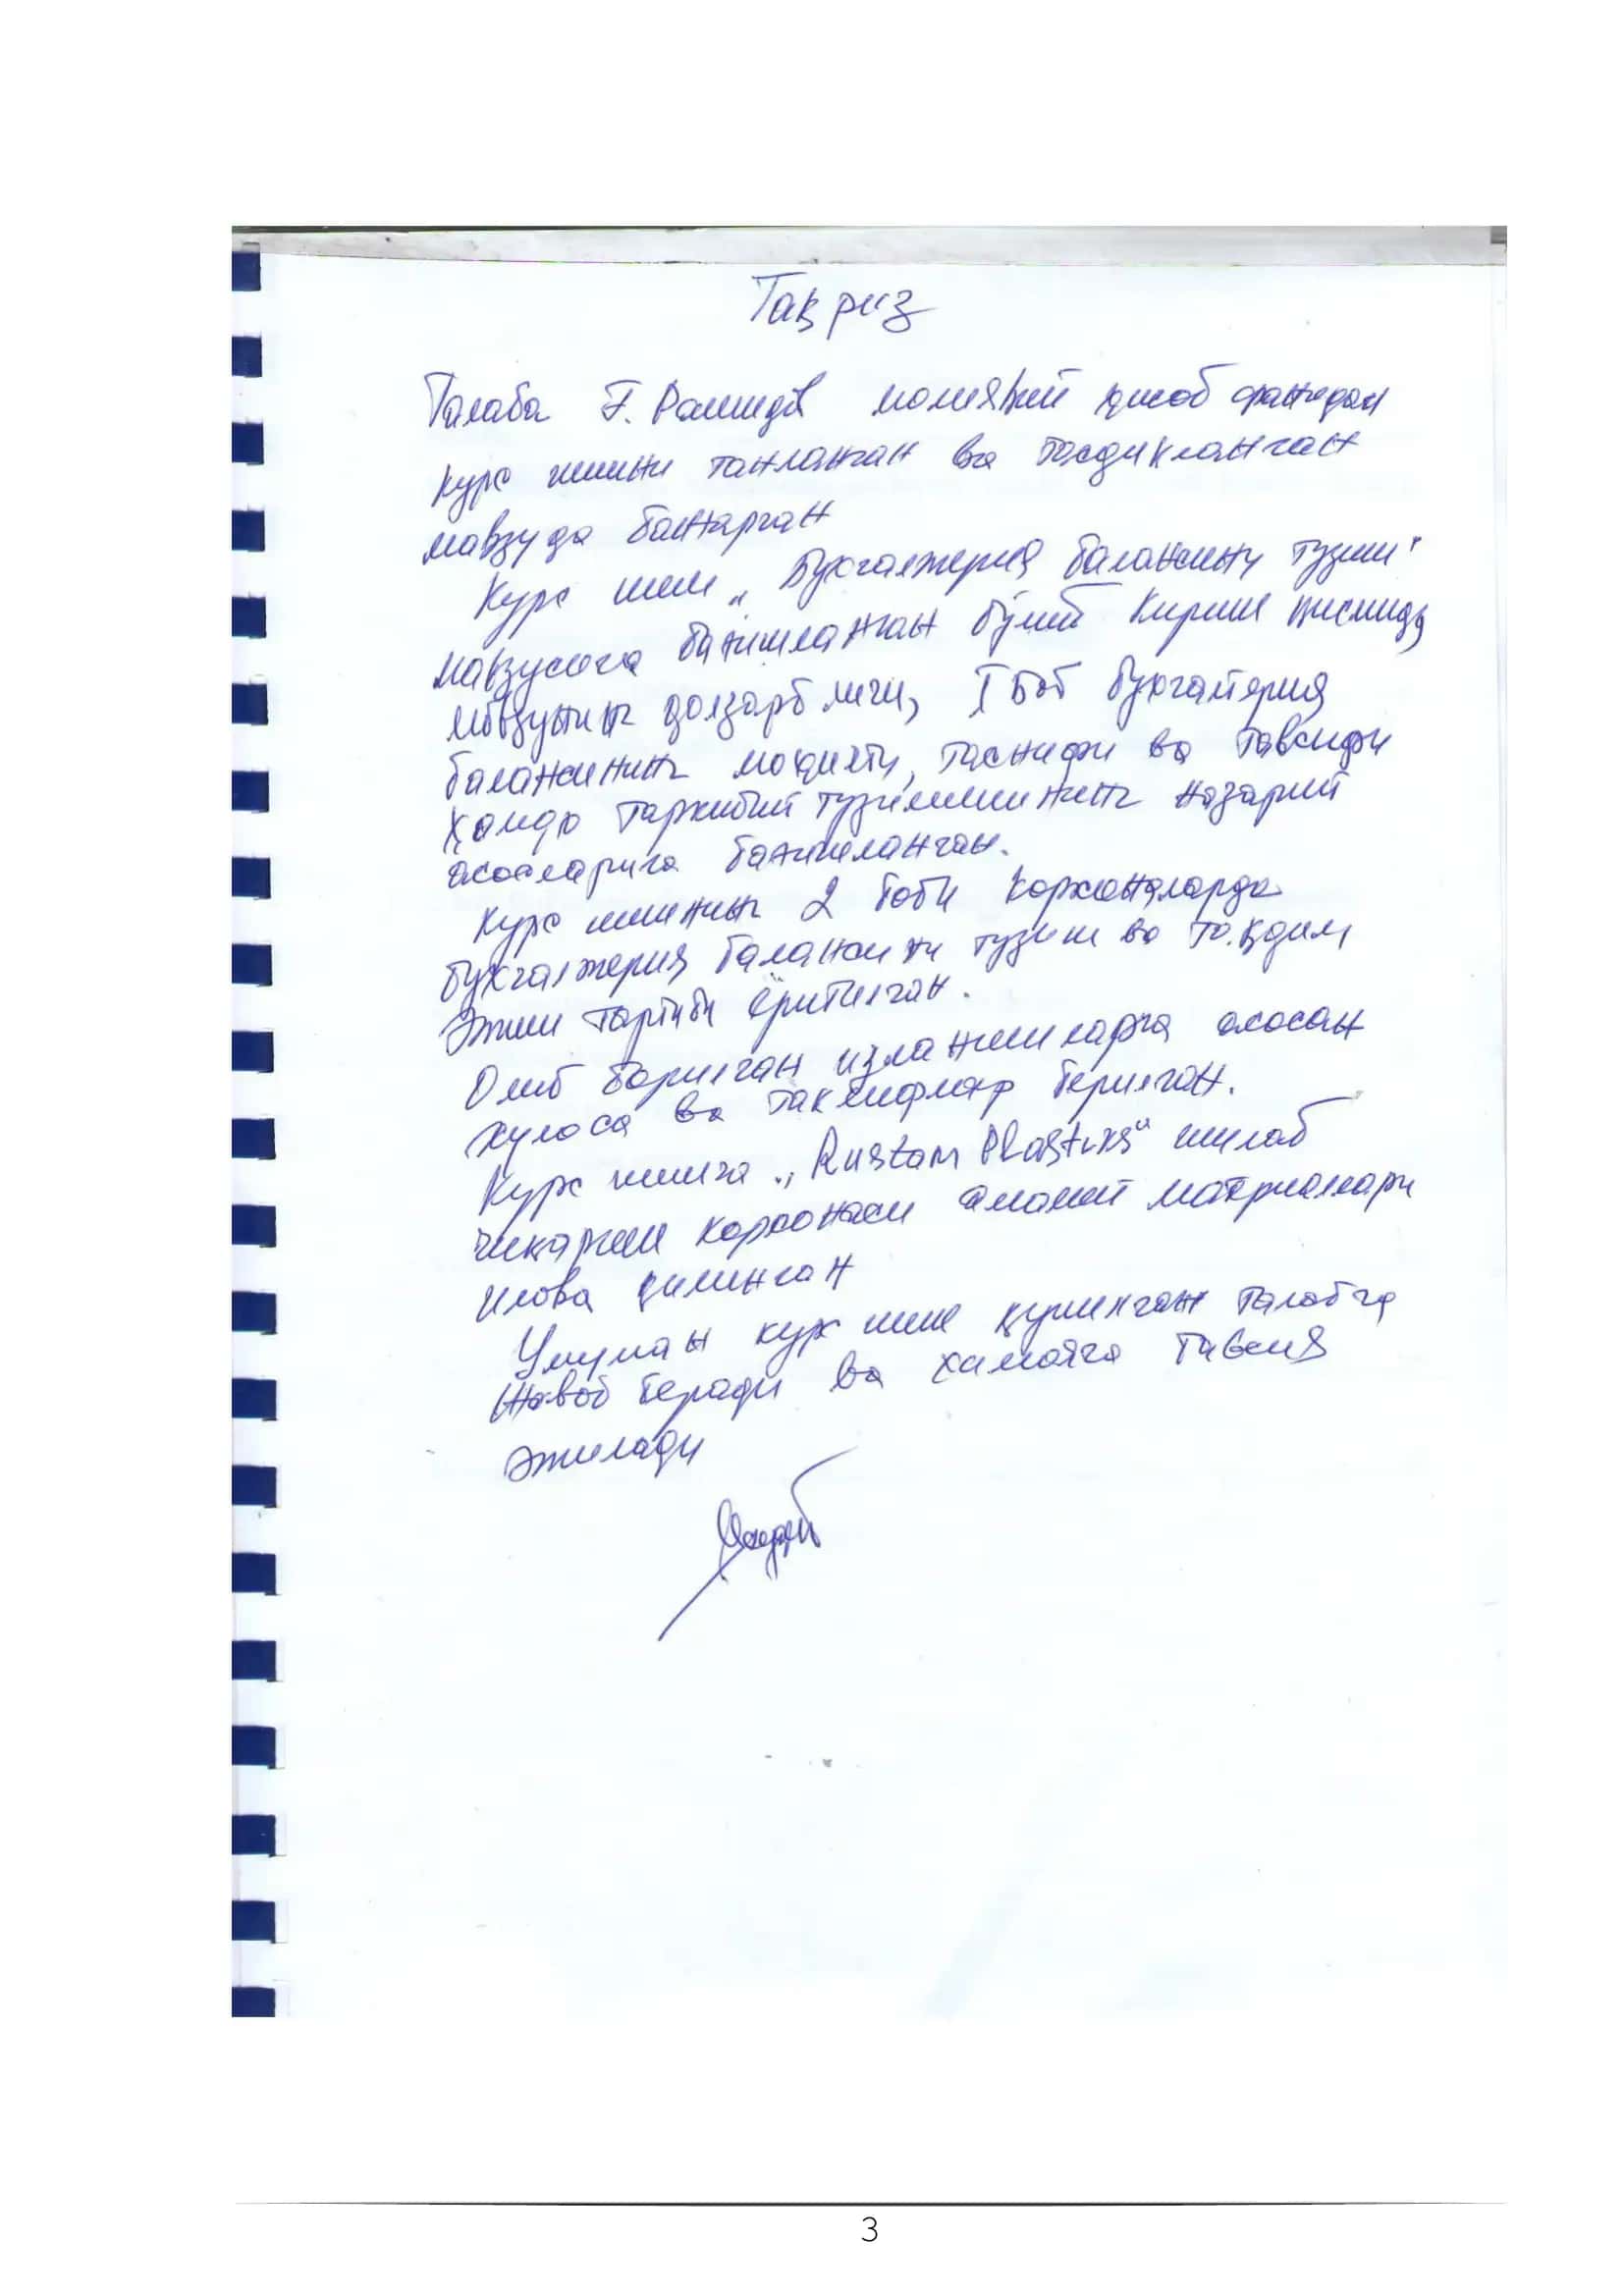 Тақриз
Талаба Ғ. Рашидов молиявий ҳисоб фанидан
курс ишини танланган ва тасдикланган
мавзуда бажарган
Курс иши „Бухгалтерия балансини тузиш"
мавзусига бағишланган бўлиб Кириш қисмида
мавзунинг долзарблиги, I Боб бухгалтерия
балансининг моҳияти, таснифи ва тавсифи
ҳамда таркибий тузилишининг назарий
асосларига бағишланган.
Курс ишининг 2 боби Корхоналарда
бухгалтерия балансини тузиш ва тақдим
этиш тартиби ёритилган.
Олиб борилган изланишларга асосан
хулоса ва таклифлар берилган.
Курс ишига „Rustam Plastiks" ишлаб
чиқариш корхонаси амалий материаллари
илова қилинган
Умуман курс иши қуйилган талабга
жавоб беради ва химояга тавсия
этилади
3